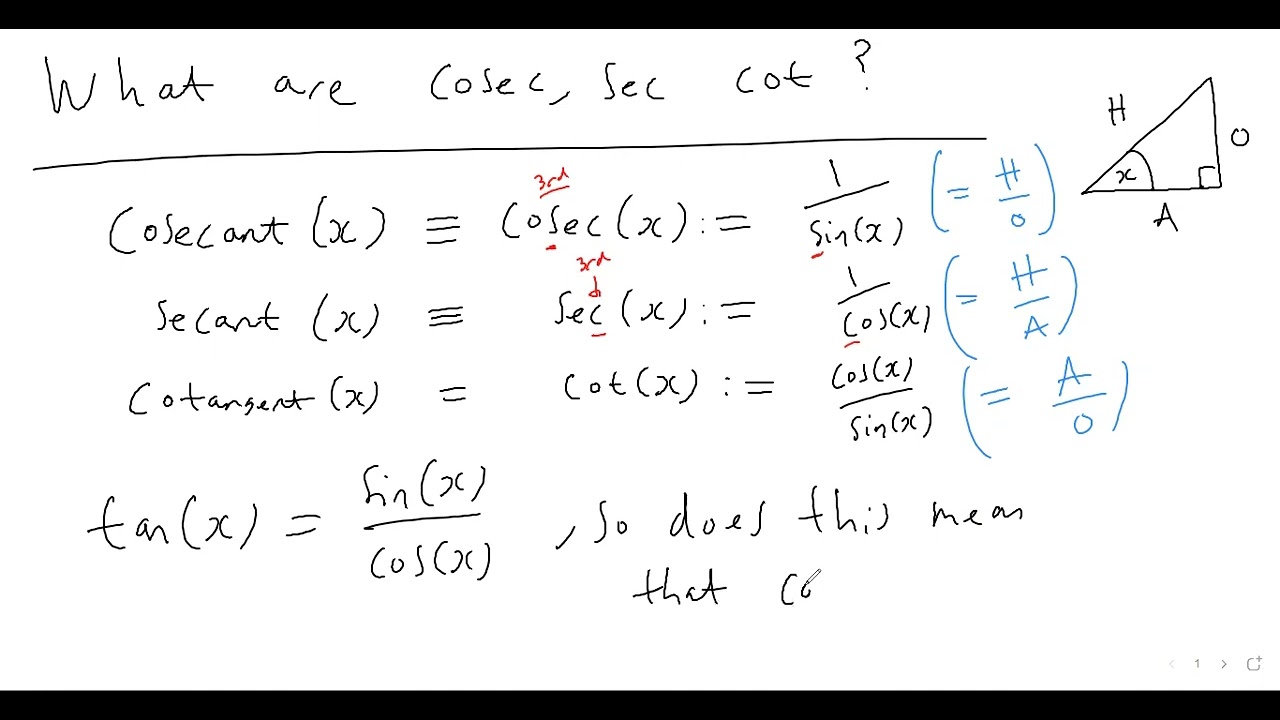 What are cosec, sec cot ?
H
O
x
A
3rd
Cosecant (x) ≡ Cosec(x) := 1/sin(x) (= H/O)
3rd
Secant (x) ≡ Sec(x) := 1/cos(x) (= H/A)
Cotangent (x) = cot(x) := cos(x)/sin(x) (= A/O)
tan(x) = sin(x)/cos(x) , so does this mean
that co
1